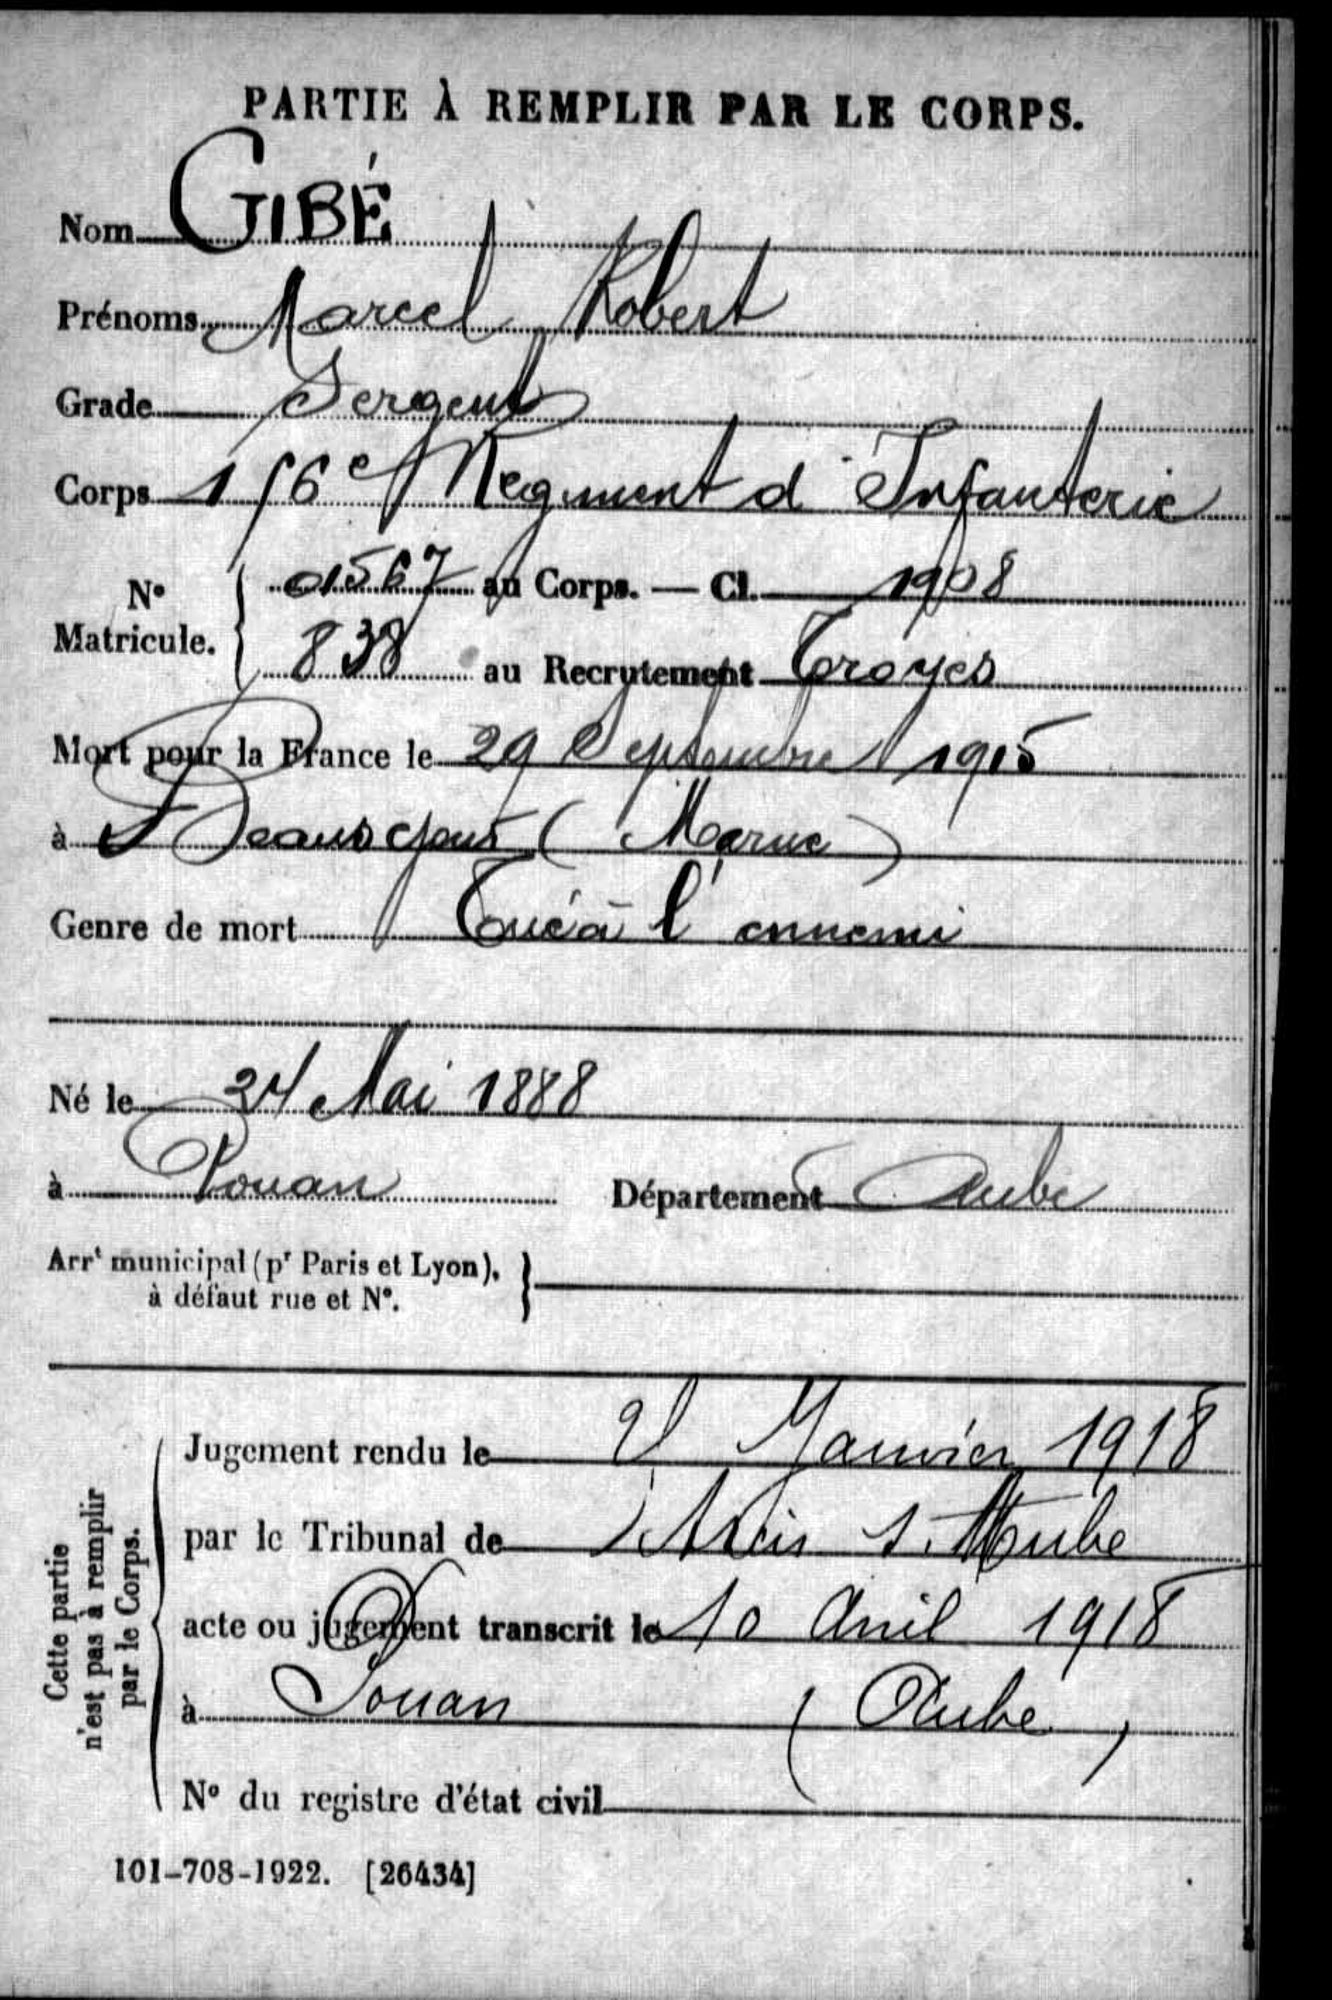 PARTIE À REMPLIR PAR LE CORPS.
Nom GIBÉ
Prénoms Marcel Robert
Grade Sergent
Corps 156e Régiment d'Infanterie
No Matricule. { 01567 au Corps. — Cl. 1908
838 au Recrutement Troyes
Mort pour la France le 29 Septembre 1915
à Beauséjour (Marne)
Genre de mort Tué à l'ennemi
Né le 24 Mai 1888
à Pouan Département Aube
Arrt municipal (pr Paris et Lyon), à défaut rue et No. }
Cette partie n'est pas à remplir par le Corps.
Jugement rendu le Janvier 1918
par le Tribunal de Arcis s. Aube
acte ou jugement transcrit le 10 Avril 1918
à Pouan (Aube)
No du registre d'état civil
101-708-1922. [26434]